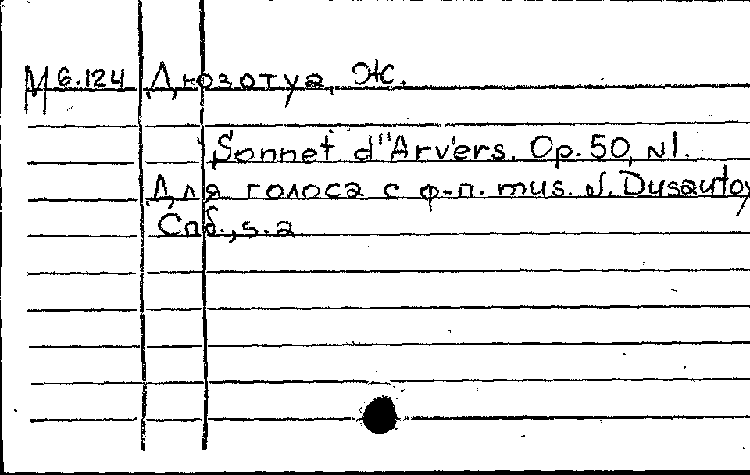 М 6.124 Дюзотуа, Ж.
Sonnet d"Arvers. Op. 50, N1.
Для голоса с ф-п. mus. J. Dusautoy
Спб., s. a